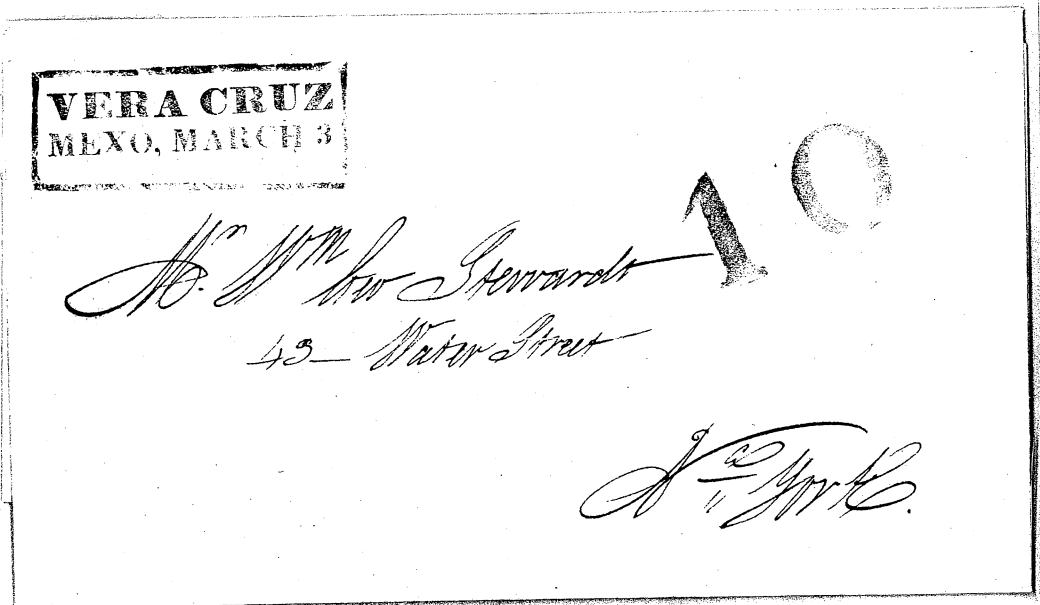 VERA CRUZ
MEXO, MARCH 3
10
Mr. Wm Stewardt
43 – Water Street
Na York.